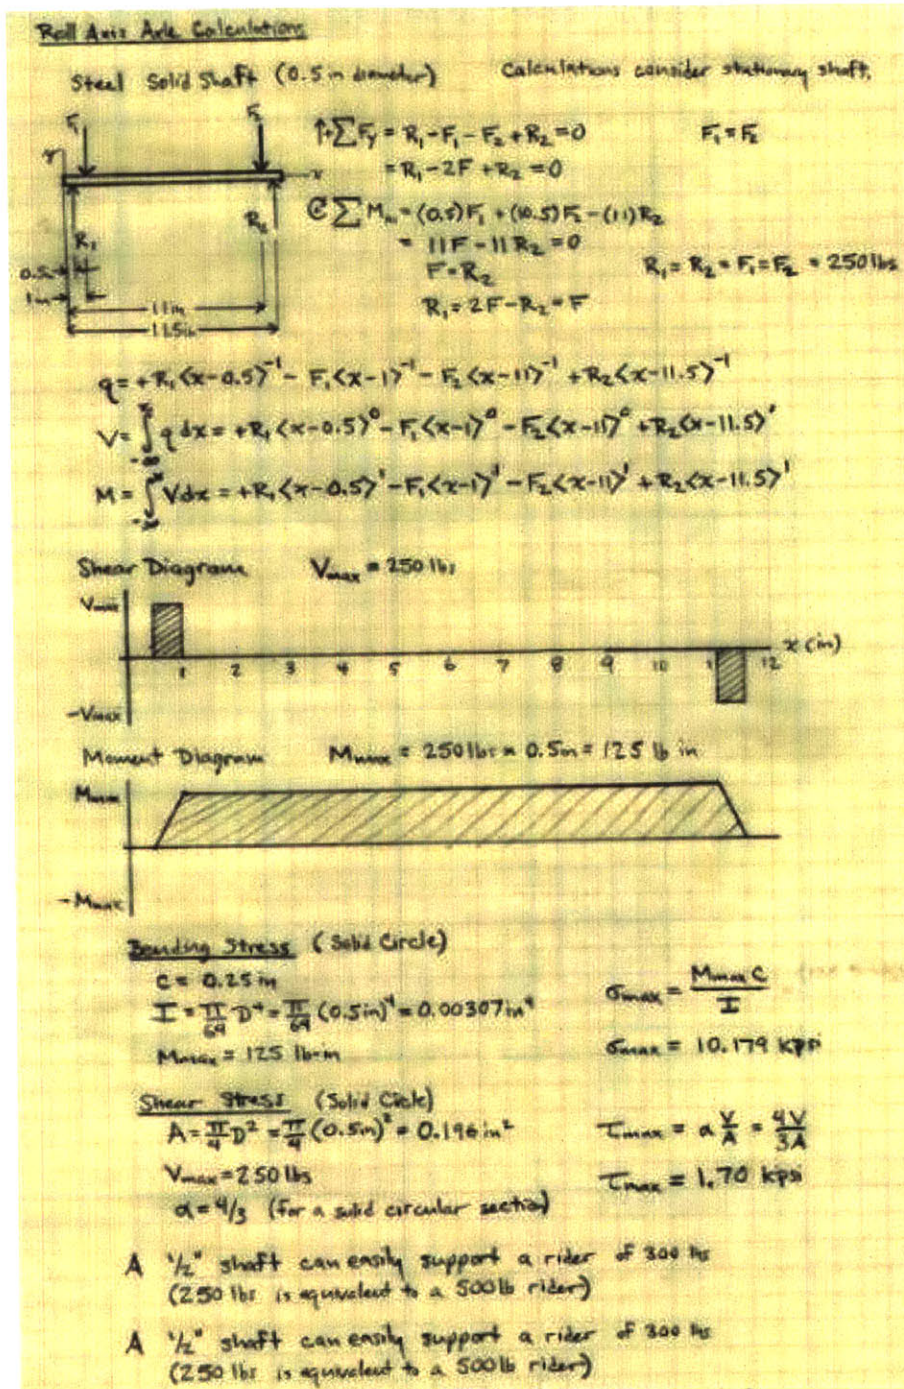 Roll Axis Axle Calculations
Steel Solid Shaft (0.5in diameter) Calculations consider stationary shaft.
F₁ F₂
y x
R₁ R₂
0.5in
1in
11in
11.5in
↑+ΣFy = R₁-F₁-F₂+R₂=0 F₁=F₂
= R₁-2F+R₂=0
ΣM = (0.5)F₁+(10.5)F₂-(11)R₂
= 11F-11R₂=0
F=R₂ R₁=R₂=F₁=F₂=250lbs
R₁=2F-R₂=F
q=+R₁<x-0.5>⁻¹-F₁<x-1>⁻¹-F₂<x-11>⁻¹+R₂<x-11.5>⁻¹
V=∫q dx=+R₁<x-0.5>⁰-F₁<x-1>⁰-F₂<x-11>⁰+R₂<x-11.5>⁰
M=∫Vdx=+R₁<x-0.5>¹-F₁<x-1>¹-F₂<x-11>¹+R₂<x-11.5>¹
Shear Diagram Vmax=250lbs
Vmax
x (in)
1 2 3 4 5 6 7 8 9 10 12
-Vmax
Moment Diagram Mmax=250lbs×0.5in=125 lb in
Mmax
-Mmax
Bending Stress (Solid Circle)
C=0.25in
σmax=Mmax C/I
I=π/64 D⁴=π/64 (0.5in)⁴=0.00307in⁴
Mmax=125 lb-in σmax=10.179 kpsi
Shear Stress (Solid Circle)
A=π/4 D²=π/4 (0.5in)²=0.196in² τmax=α V/A=4V/3A
Vmax=250lbs τmax=1.70 kpsi
α=4/3 (for a solid circular section)
A 1/2" shaft can easily support a rider of 300 lbs
(250 lbs is equivalent to a 500lb rider)
A 1/2" shaft can easily support a rider of 300 lbs
(250 lbs is equivalent to a 500lb rider)